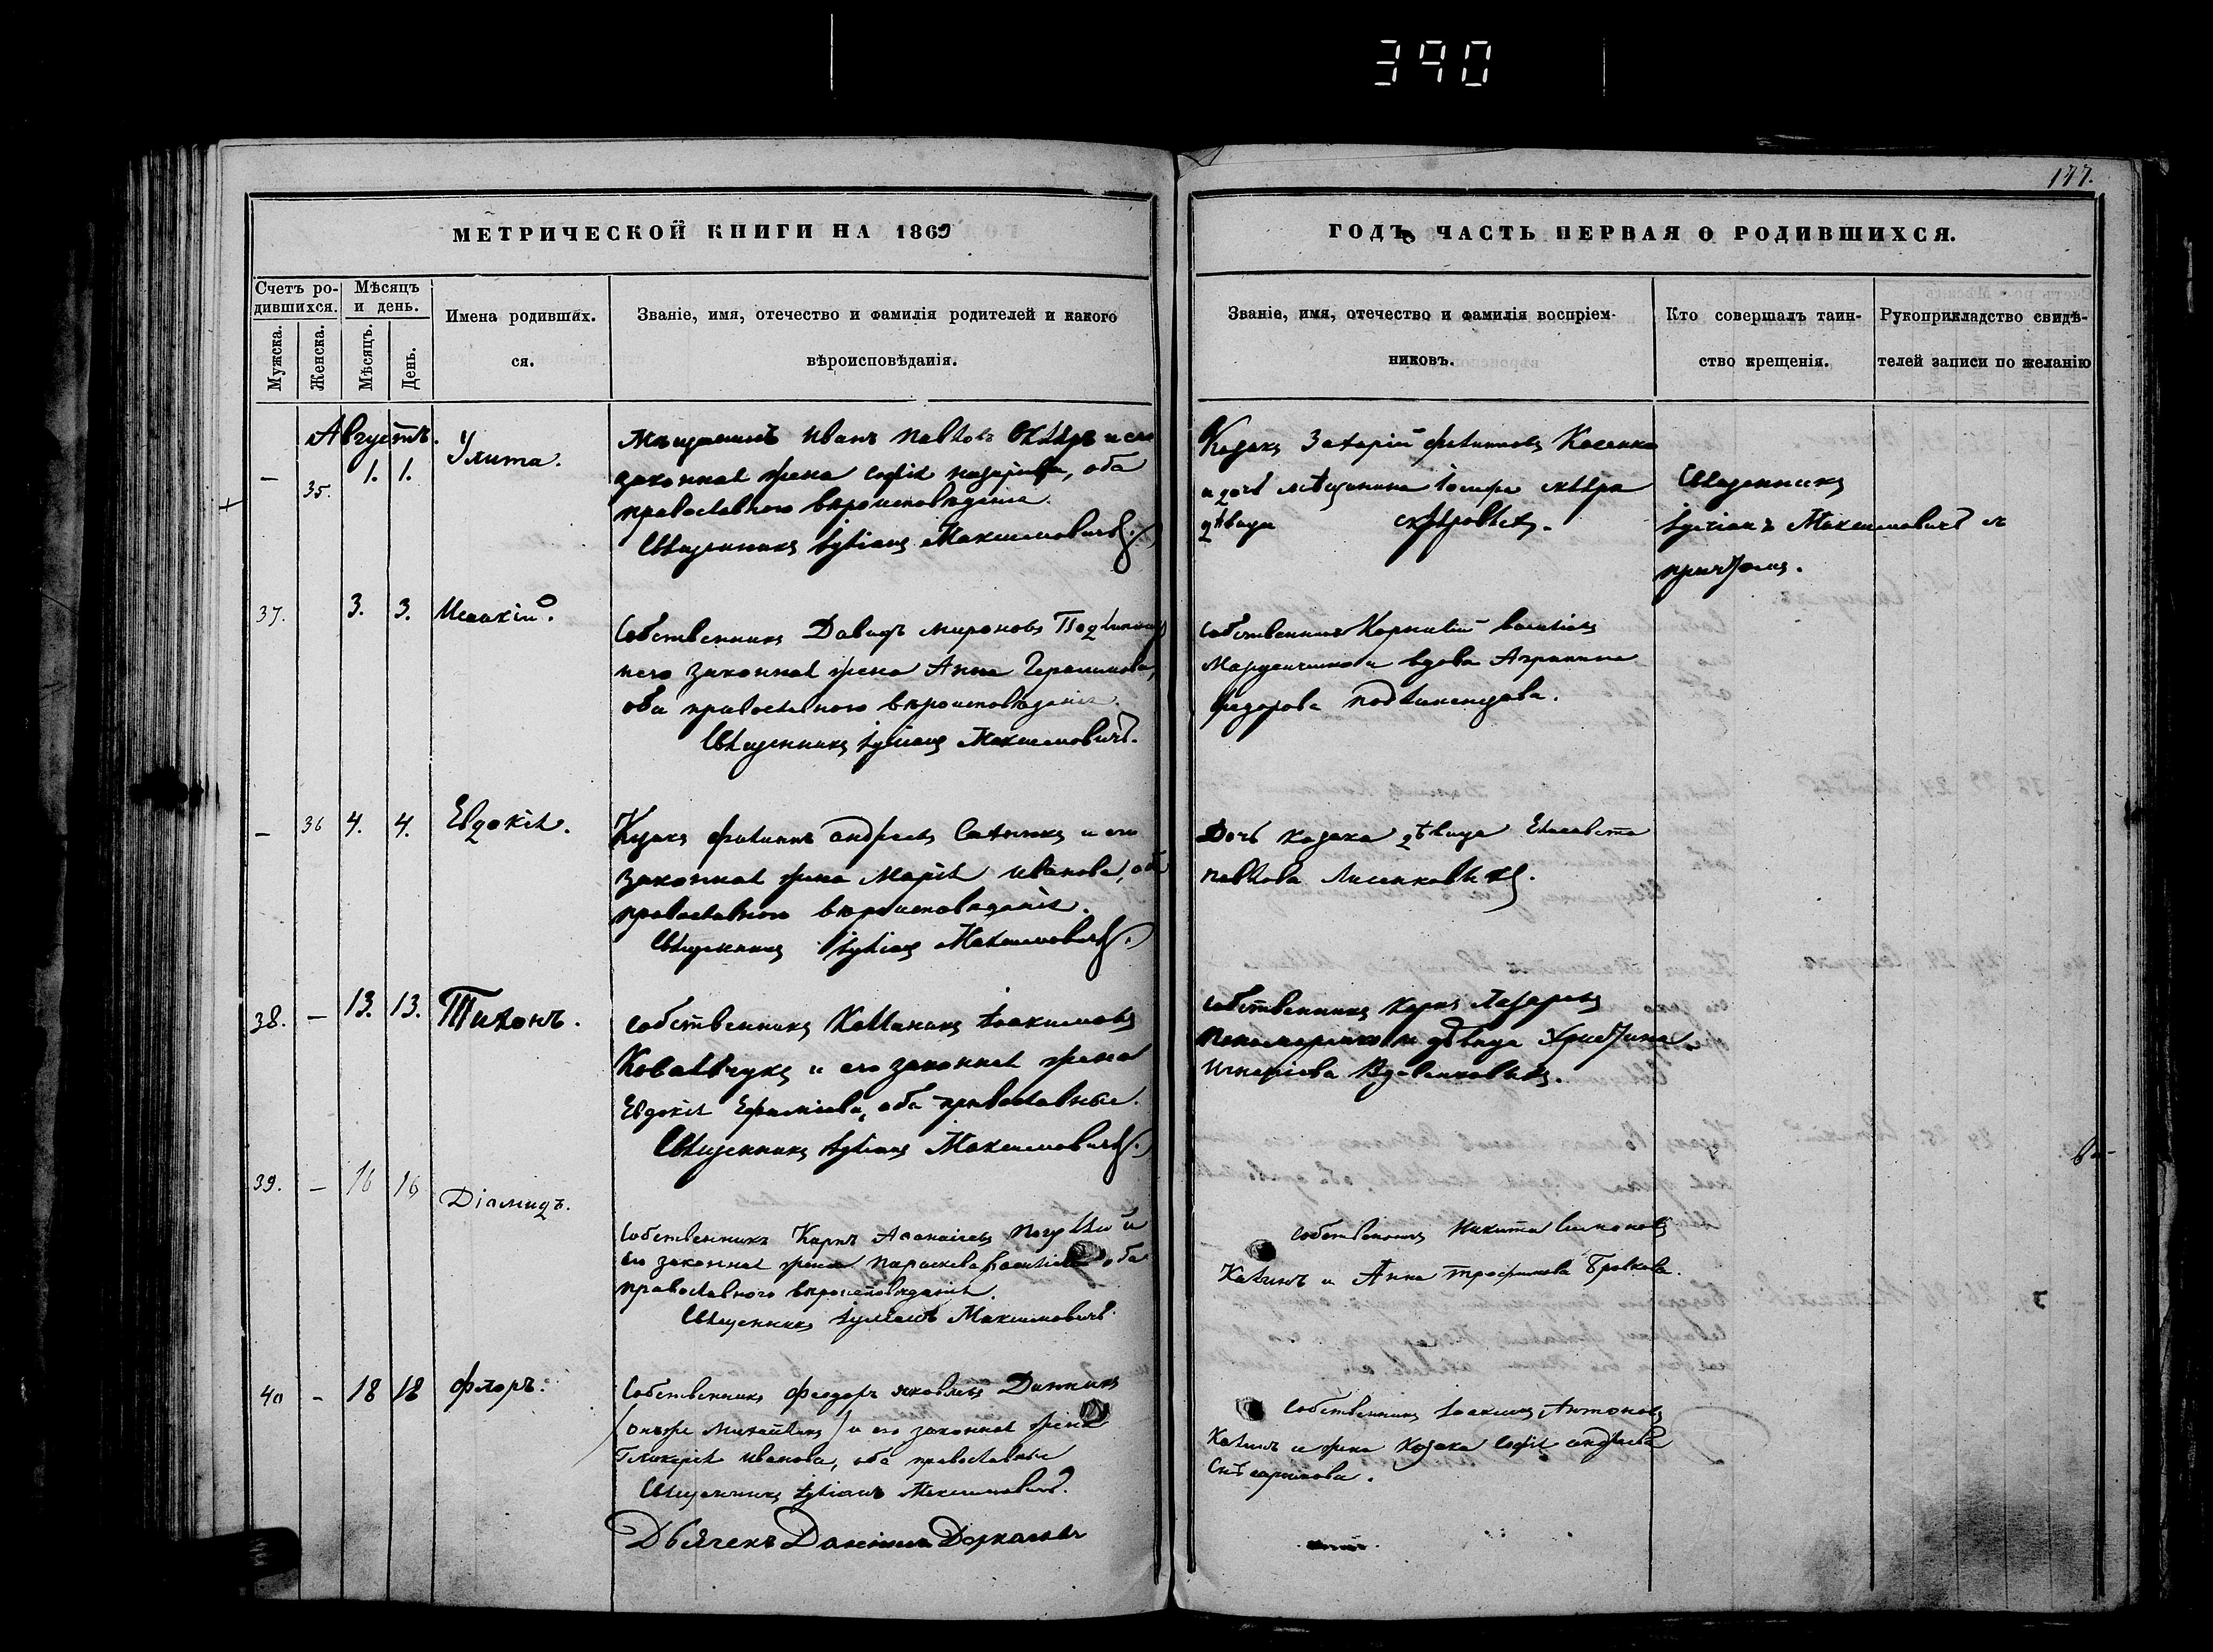 390
147.
МЕТРИЧЕСКОЙ КНИГИ НА 1869
ГОДЪ, ЧАСТЬ ПЕРВАЯ О РОДИВШИХСЯ.
Счетъ ро-
дившихся.
Мужска.
Женска.
Мѣсяцъ
и день.
Мѣсяцъ.
День.
Имена родивших.
ся.
Званіе, имя, отечество и фамилія родителей и какого
вѣроисповѣданія.
Званіе, имя, отечество и фамилія воспріем-
никовъ.
Кто совершалъ таин-
ство крещенія.
Рукоприкладство свидѣ-
телей записи по желанію
Августъ.
– 35. 1. 1. Улита.
Мѣщанинъ Иванъ Павловъ и его
законная жена Софія Назарова, оба
православного вѣроисповѣданія.
Священникъ Іуліанъ Максимовичъ.
Козакъ Захарій Филиповъ Косенко
и дочь мѣщанина Іосифа
дѣвица
Священникъ
Іуліанъ Максимовичъ съ
причтомъ.
37. 3. 3. Исаакій.
Собственникъ Давидъ Мироновъ
и его законная жена Анна Герасимова,
оба православного вѣроисповѣданія.
Священникъ Іуліанъ Максимовичъ.
Собственникъ Корнилій Васильевъ
и вдова Агрипина
Федорова
– 36 4. 4. Евдокія.
Козакъ Филипъ Андреевъ и его
законная жена Марія Иванова, оба
православного вѣроисповѣданія.
Священникъ Іуліанъ Максимовичъ.
Дочь козака дѣвица Елисавета
Павлова
38. – 13. 13. Тихонъ.
Собственникъ Каллиникъ Іоакимовъ
Ковальчукъ и его законная жена
Евдокія Ефимова, оба православные.
Священникъ Іуліанъ Максимовичъ.
Собственникъ Карпъ Лазаревъ
Пономаренко и дѣвица Христина
39. – 16 16 Діомидъ.
Собственникъ Карпъ Аѳанасіевъ и
его законная жена Параскева Васильева оба
православного вѣроисповѣданія.
Священникъ Іуліанъ Максимовичъ.
Собственникъ Никита Симоновъ
Калинъ и Анна Трофимова
40 – 18 18 Флоръ.
Собственникъ Феодоръ Яковлевъ
(онъже ) и его законная жена
Гликерія Иванова, оба православные
Священникъ Іуліанъ Максимовичъ.
Собственникъ Іоакимъ Антоновъ
Калинъ и жена козака Софія Андреева
Дьячекъ